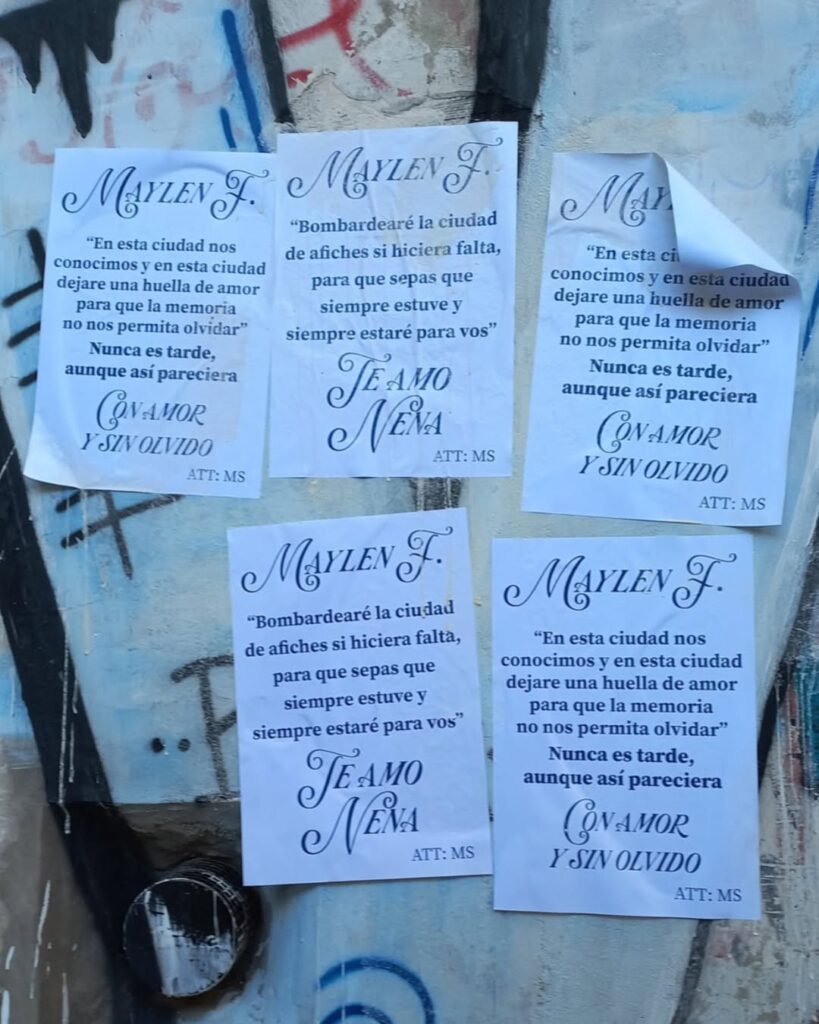 MAYLEN F.
“En esta ciudad nos
conocimos y en esta ciudad
dejare una huella de amor
para que la memoria
no nos permita olvidar”
Nunca es tarde,
aunque así pareciera
CON AMOR
Y SIN OLVIDO
ATT: MS
MAYLEN F.
“Bombardearé la ciudad
de afiches si hiciera falta,
para que sepas que
siempre estuve y
siempre estaré para vos”
TE AMO
NENA
ATT: MS
“En esta
conocimos y en esta ciudad
dejare una huella de amor
para que la memoria
no nos permita olvidar”
Nunca es tarde,
aunque así pareciera
CON AMOR
Y SIN OLVIDO
ATT: MS
MAYLEN F.
“Bombardearé la ciudad
de afiches si hiciera falta,
para que sepas que
siempre estuve y
siempre estaré para vos”
TE AMO
NENA
ATT: MS
MAYLEN F.
“En esta ciudad nos
conocimos y en esta ciudad
dejare una huella de amor
para que la memoria
no nos permita olvidar”
Nunca es tarde,
aunque así pareciera
CON AMOR
Y SIN OLVIDO
ATT: MS